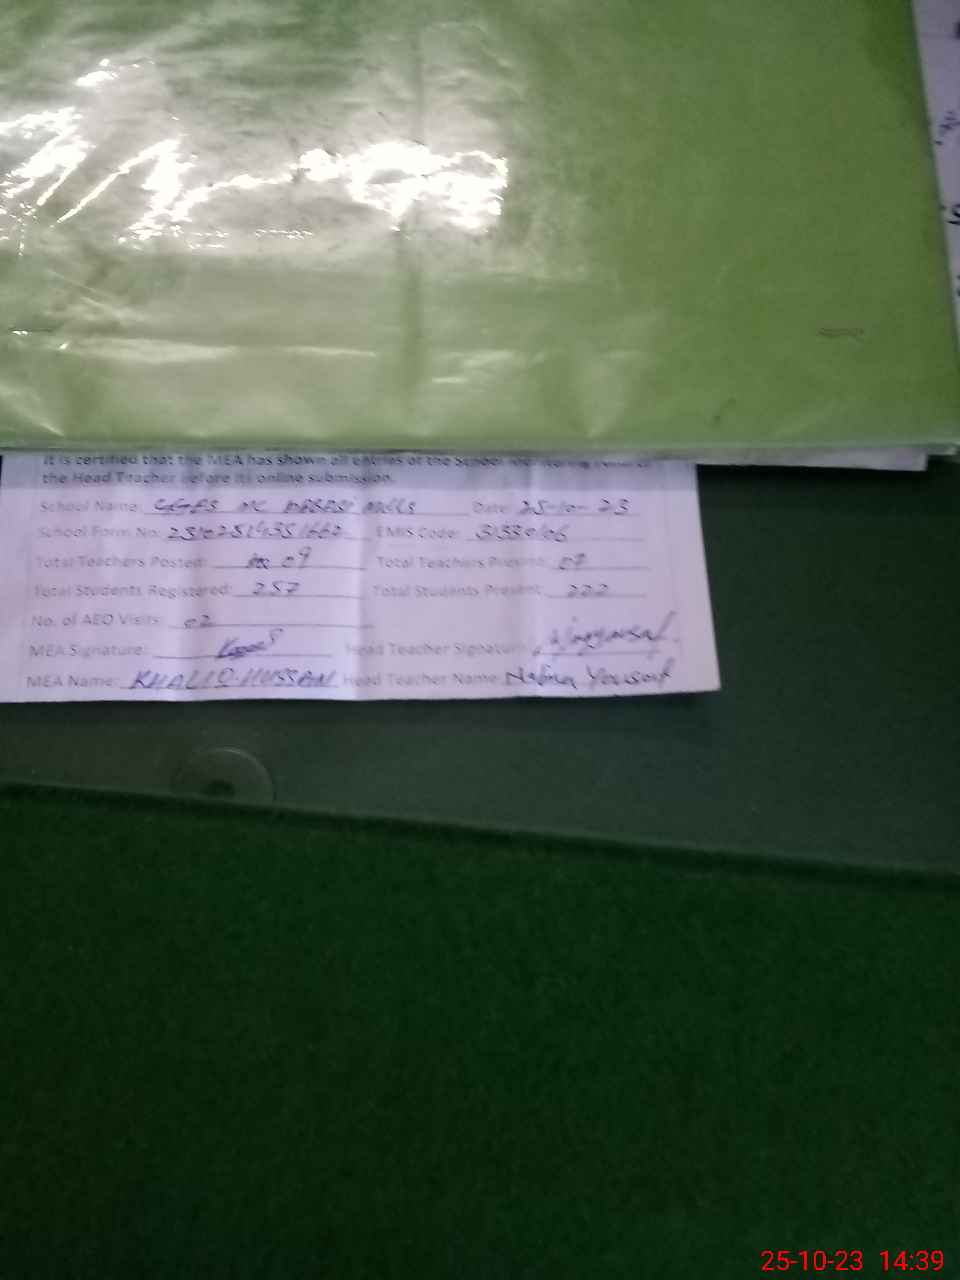 It is certified that the MEA has shown all entries of the School
the Head Teacher before its online submission.
School Name: GGES MC Mills Date: 25-10-23
School Form No: EMIS Code:
Total Teachers Posted: 09 Total Teachers Present: 07
Total Students Registered: 257 Total Students Present: 222
No. of AEO Visits: 02
MEA Signature: Head Teacher Signature:
MEA Name: KHALIQ HUSSAN Head Teacher Name: Yousaf
25-10-23 14:39